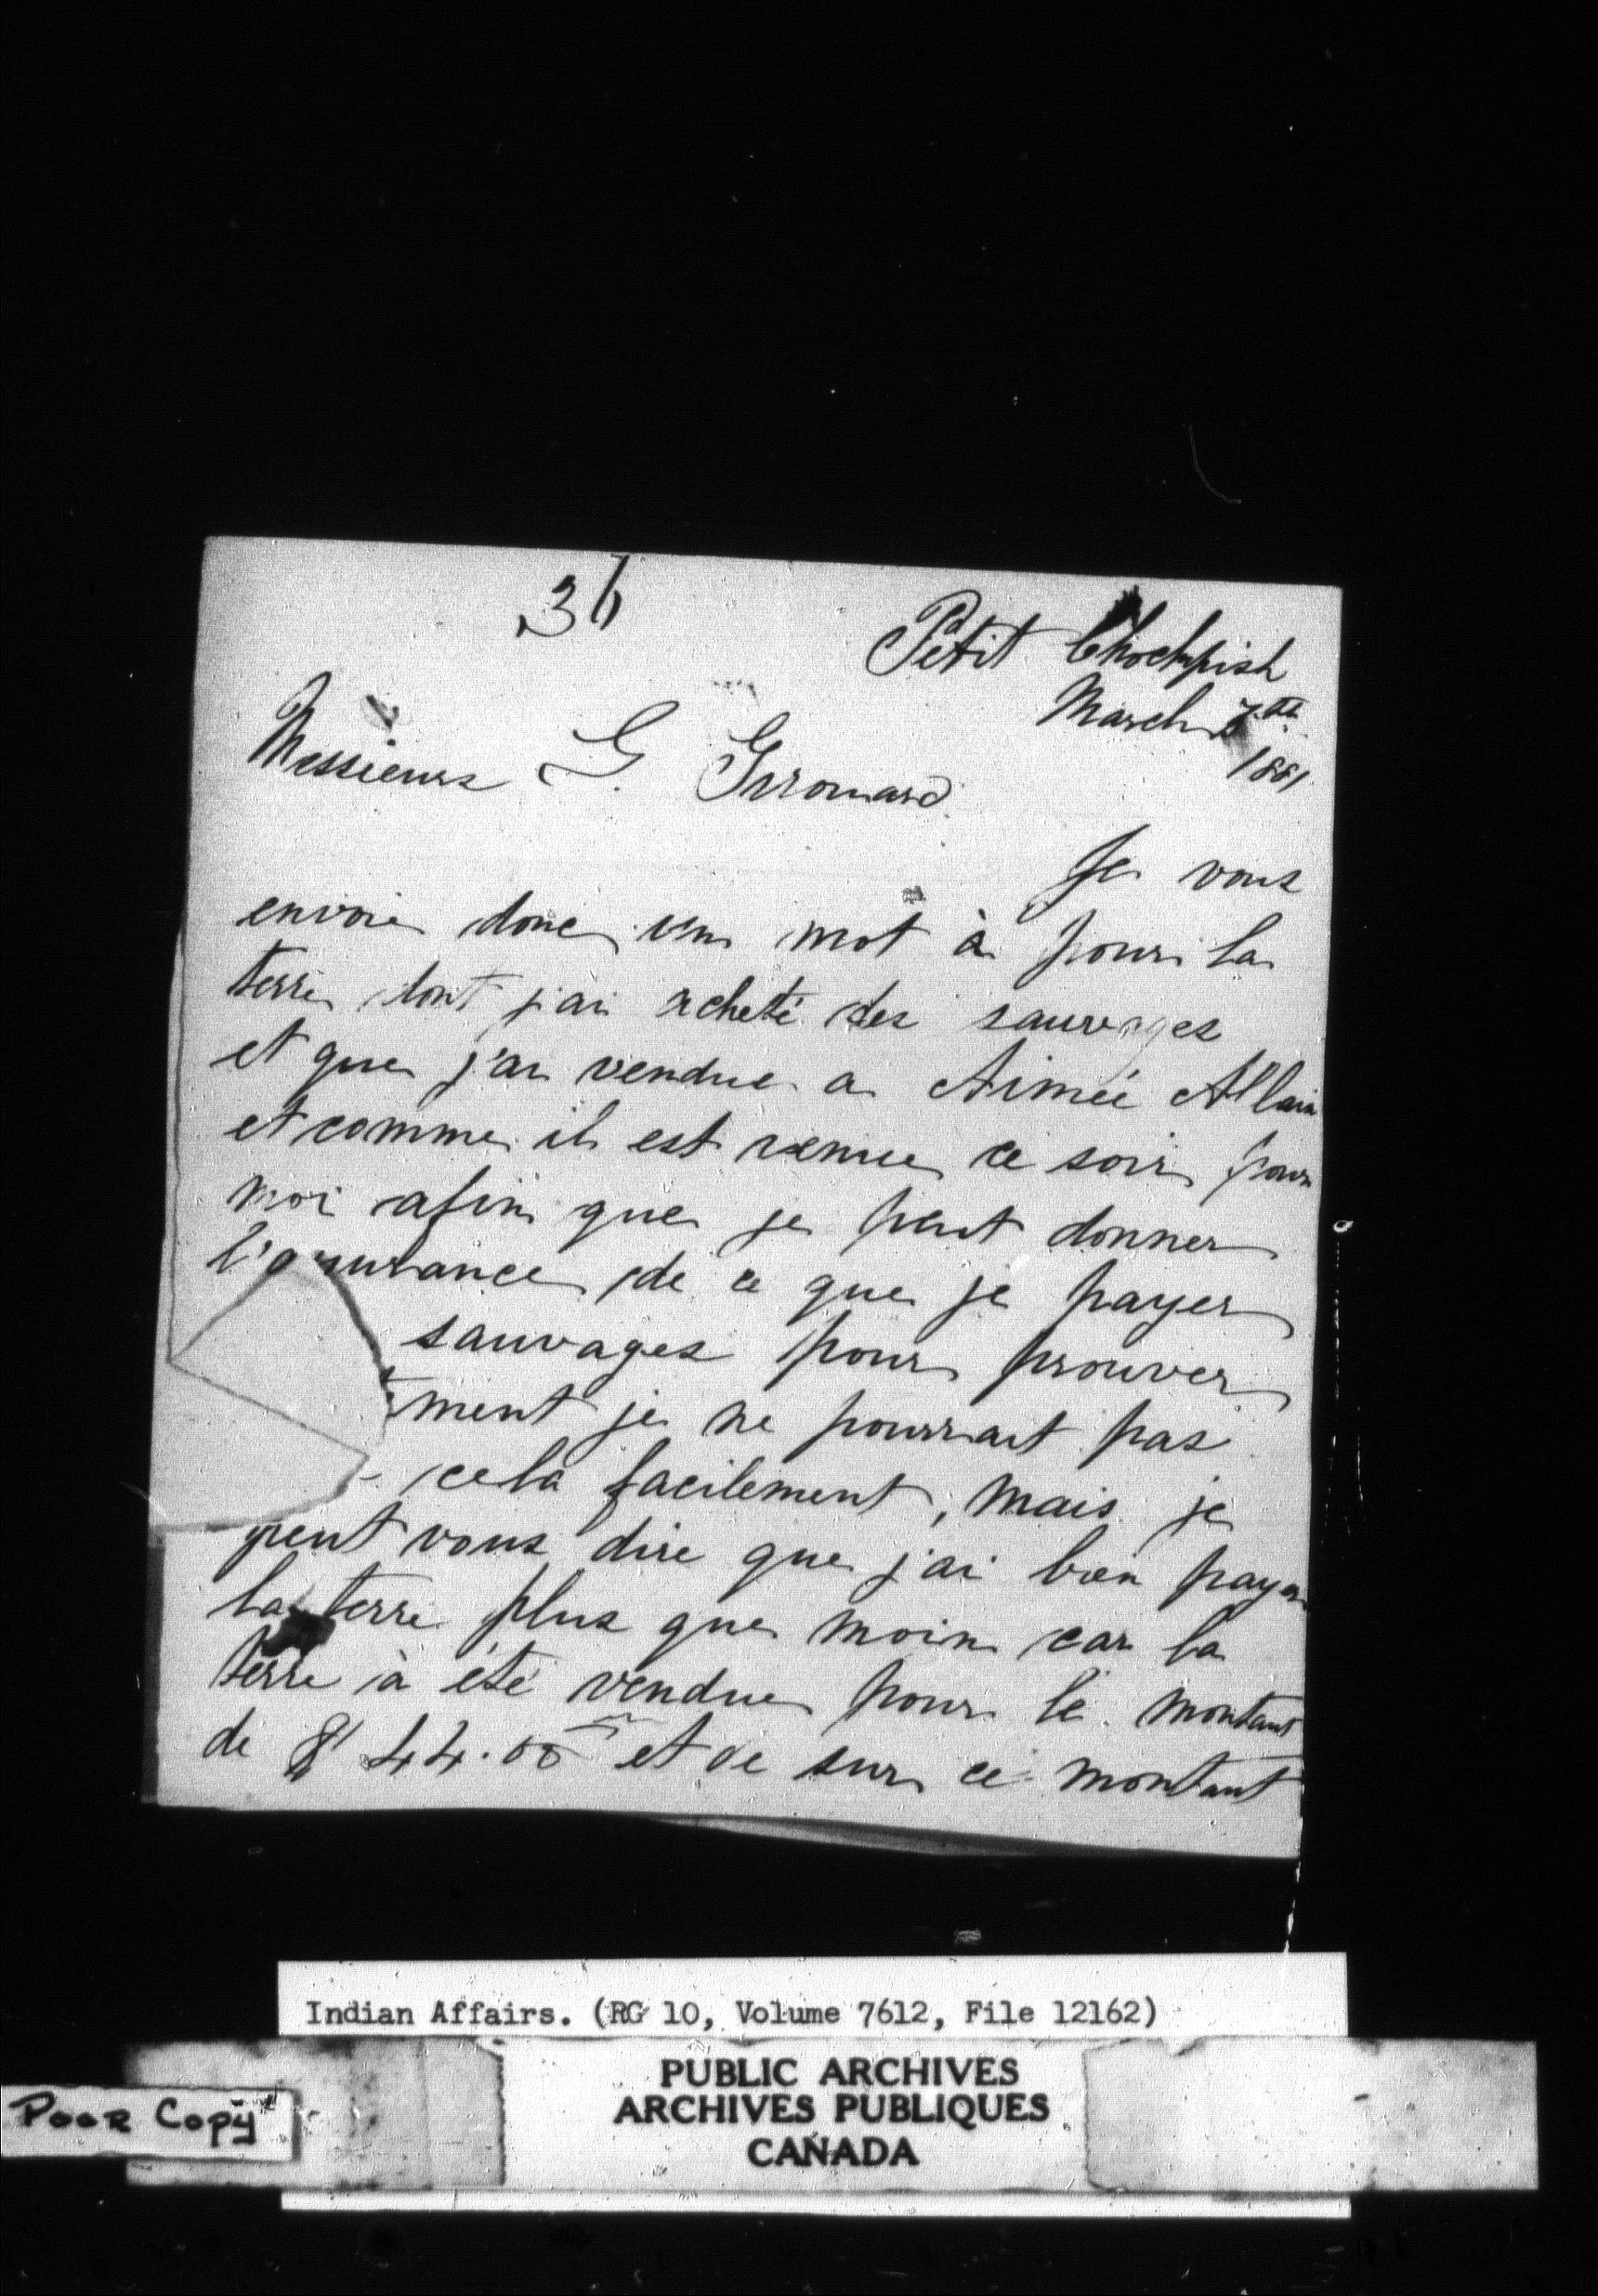 36
Petit Chockpish
March 7th
1881
Messieurs G. Girouard
Je vous
envoie donc un mot à pour la
terre dont j'ai acheté des sauvages
et que j'ai vendue a Aimée Allain
et comme il est venue ce soir pour
moi afin que je peut donner
l'assurance de ce que je payer
sauvages pour prouver
ment je ne pourrait pas
cela facilement, mais je
peut vous dire que j'ai bien payer
la terre plus que moin car la
terre à été vendue pour le montant
de $ 44.00 et de sur ce montant
Indian Affairs. (RG 10, Volume 7612, File 12162)
PUBLIC ARCHIVES
ARCHIVES PUBLIQUES
CANADA
Poor Copy